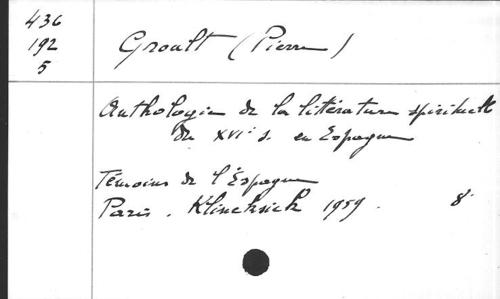 436
192
5
Groult (Pierre)
Anthologie de la littérature spirituelle
du XVIe s. en Espagne
Témoins de l'Espagne
Paris. Klincksieck 1959. 8°